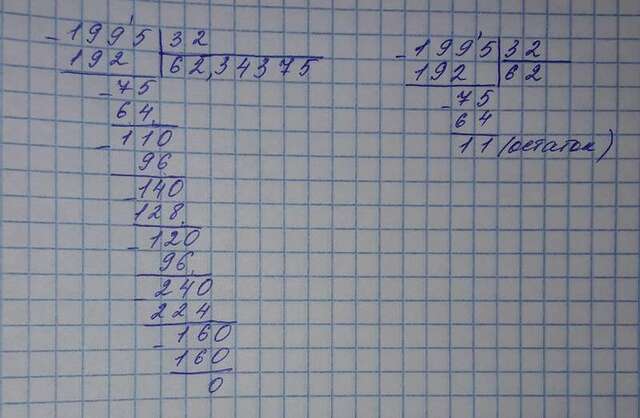 - 1995 | 32
192 | 62,34375
- 75
64
- 110
96
- 140
128
- 120
96
- 240
224
- 160
160
0
- 1995 | 32
192 | 62
- 75
64
11 (остаток)